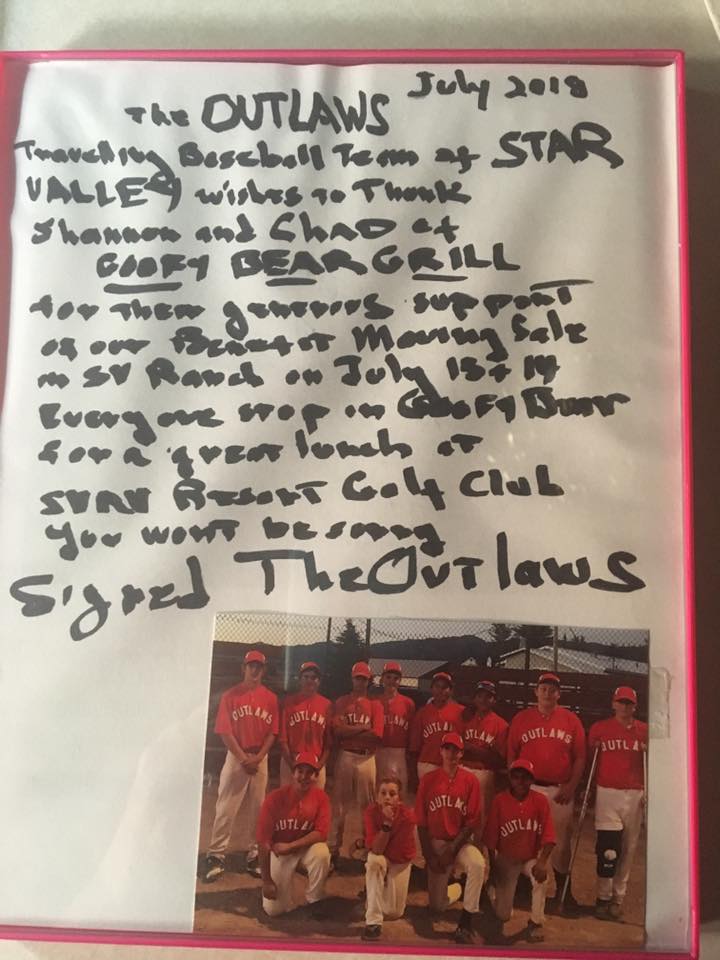 July 2018
The OUTLAWS
Traveling Baseball Team of STAR
VALLEY wishes to Thank
Shannon and Chad at
GOOFY BEAR GRILL
for their generous support
of our Benefit Moving Sale
in SV Ranch on July 13 + 14
Everyone stop in Goofy Bear
for a great lunch at
Resort Golf Club
You wont be sorry
Signed The Outlaws
OUTLAWS
OUTLAWS
OUTLAWS
OUTLAWS
OUTLA
UTLAWS
OUTLAWS
OUTLA
OUTLA
OUTLAWS
OUTLAWS